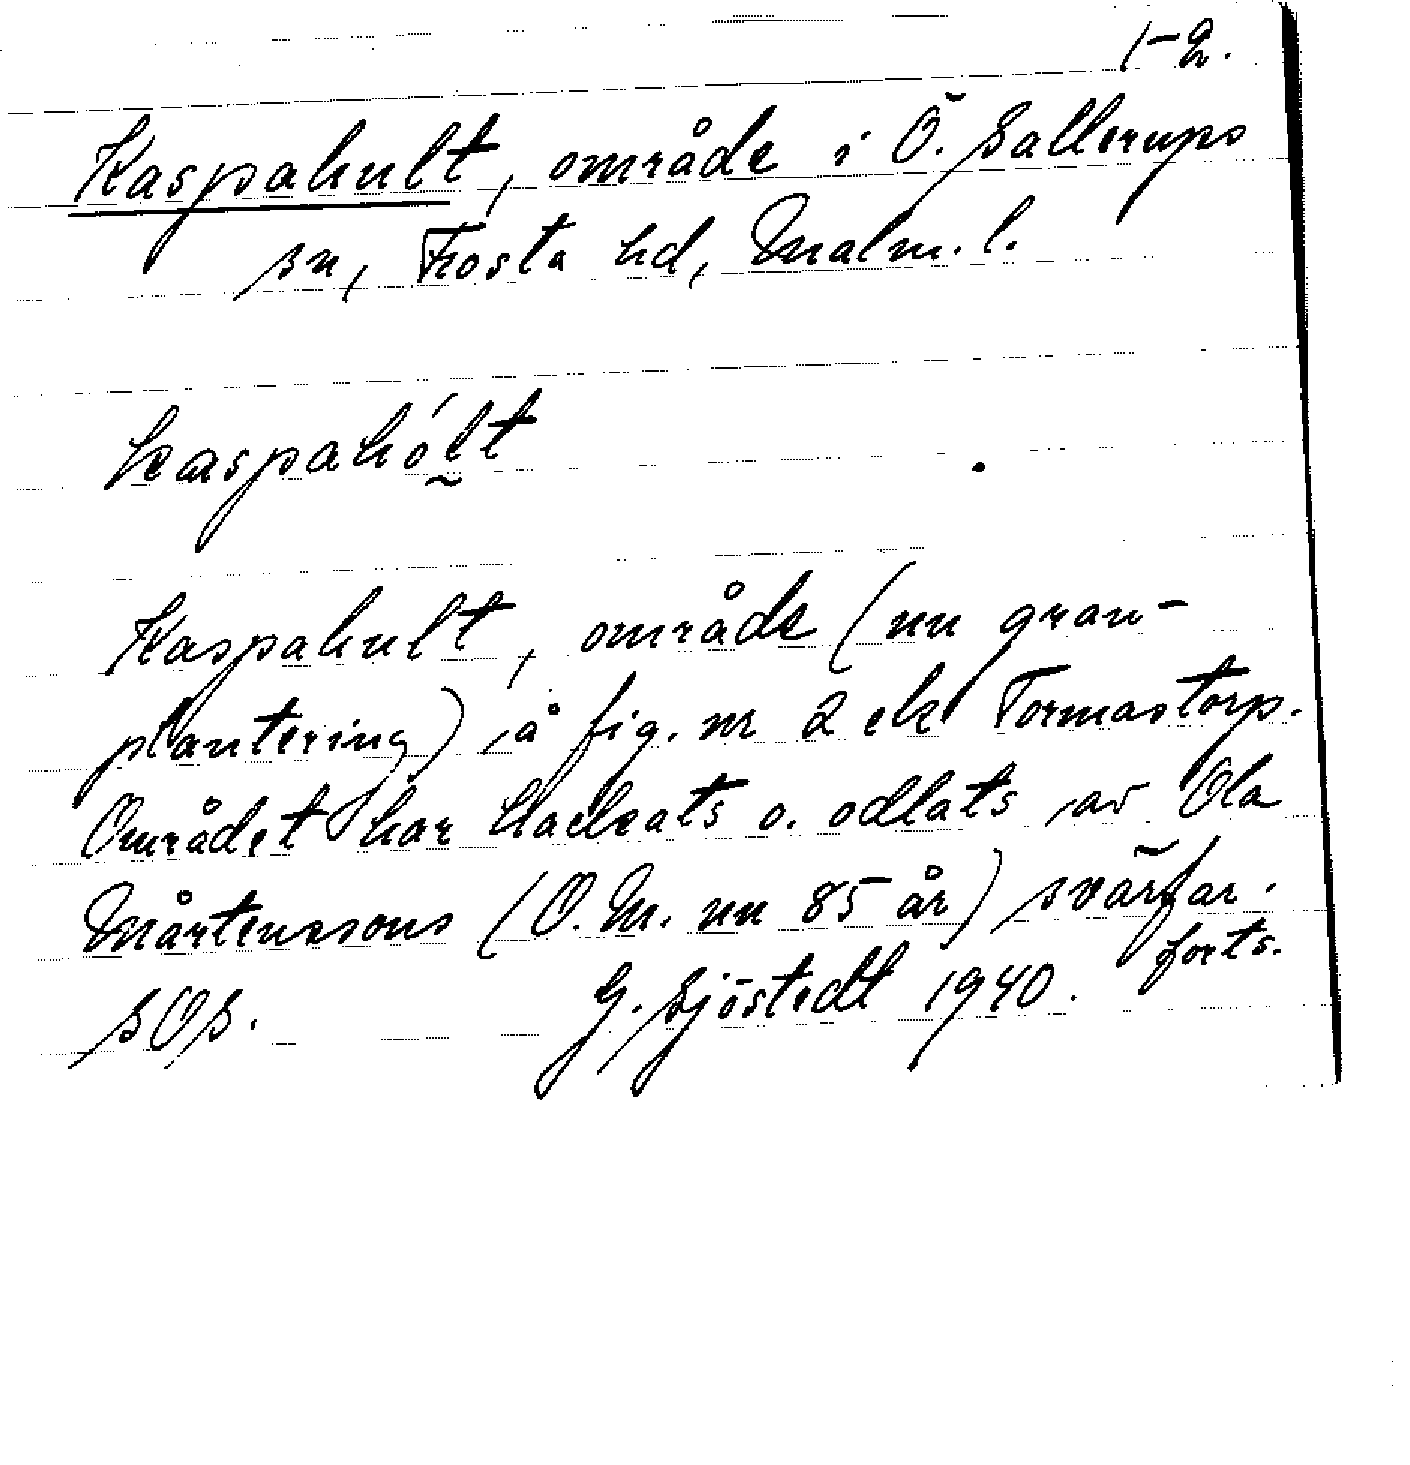 1-2.
Kaspahult, område i Ö. Sallerups
sn, Frosta hd, Malm. l.
kaspahól̰t
Kaspahult, område (nu gran-
plantering) å fig. nr 2 ek Tormastorp.
Området har hackats o. odlats av Ola
Mårtenssons (O.M. nu 85 år) svärfar.
forts.
SOS. G. Sjöstedt 1940.